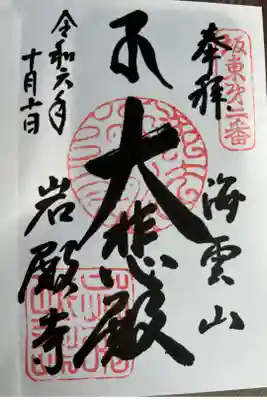 坂東第二番
奉拝
海雲山
大悲殿
岩殿寺
令和六年
十月十日